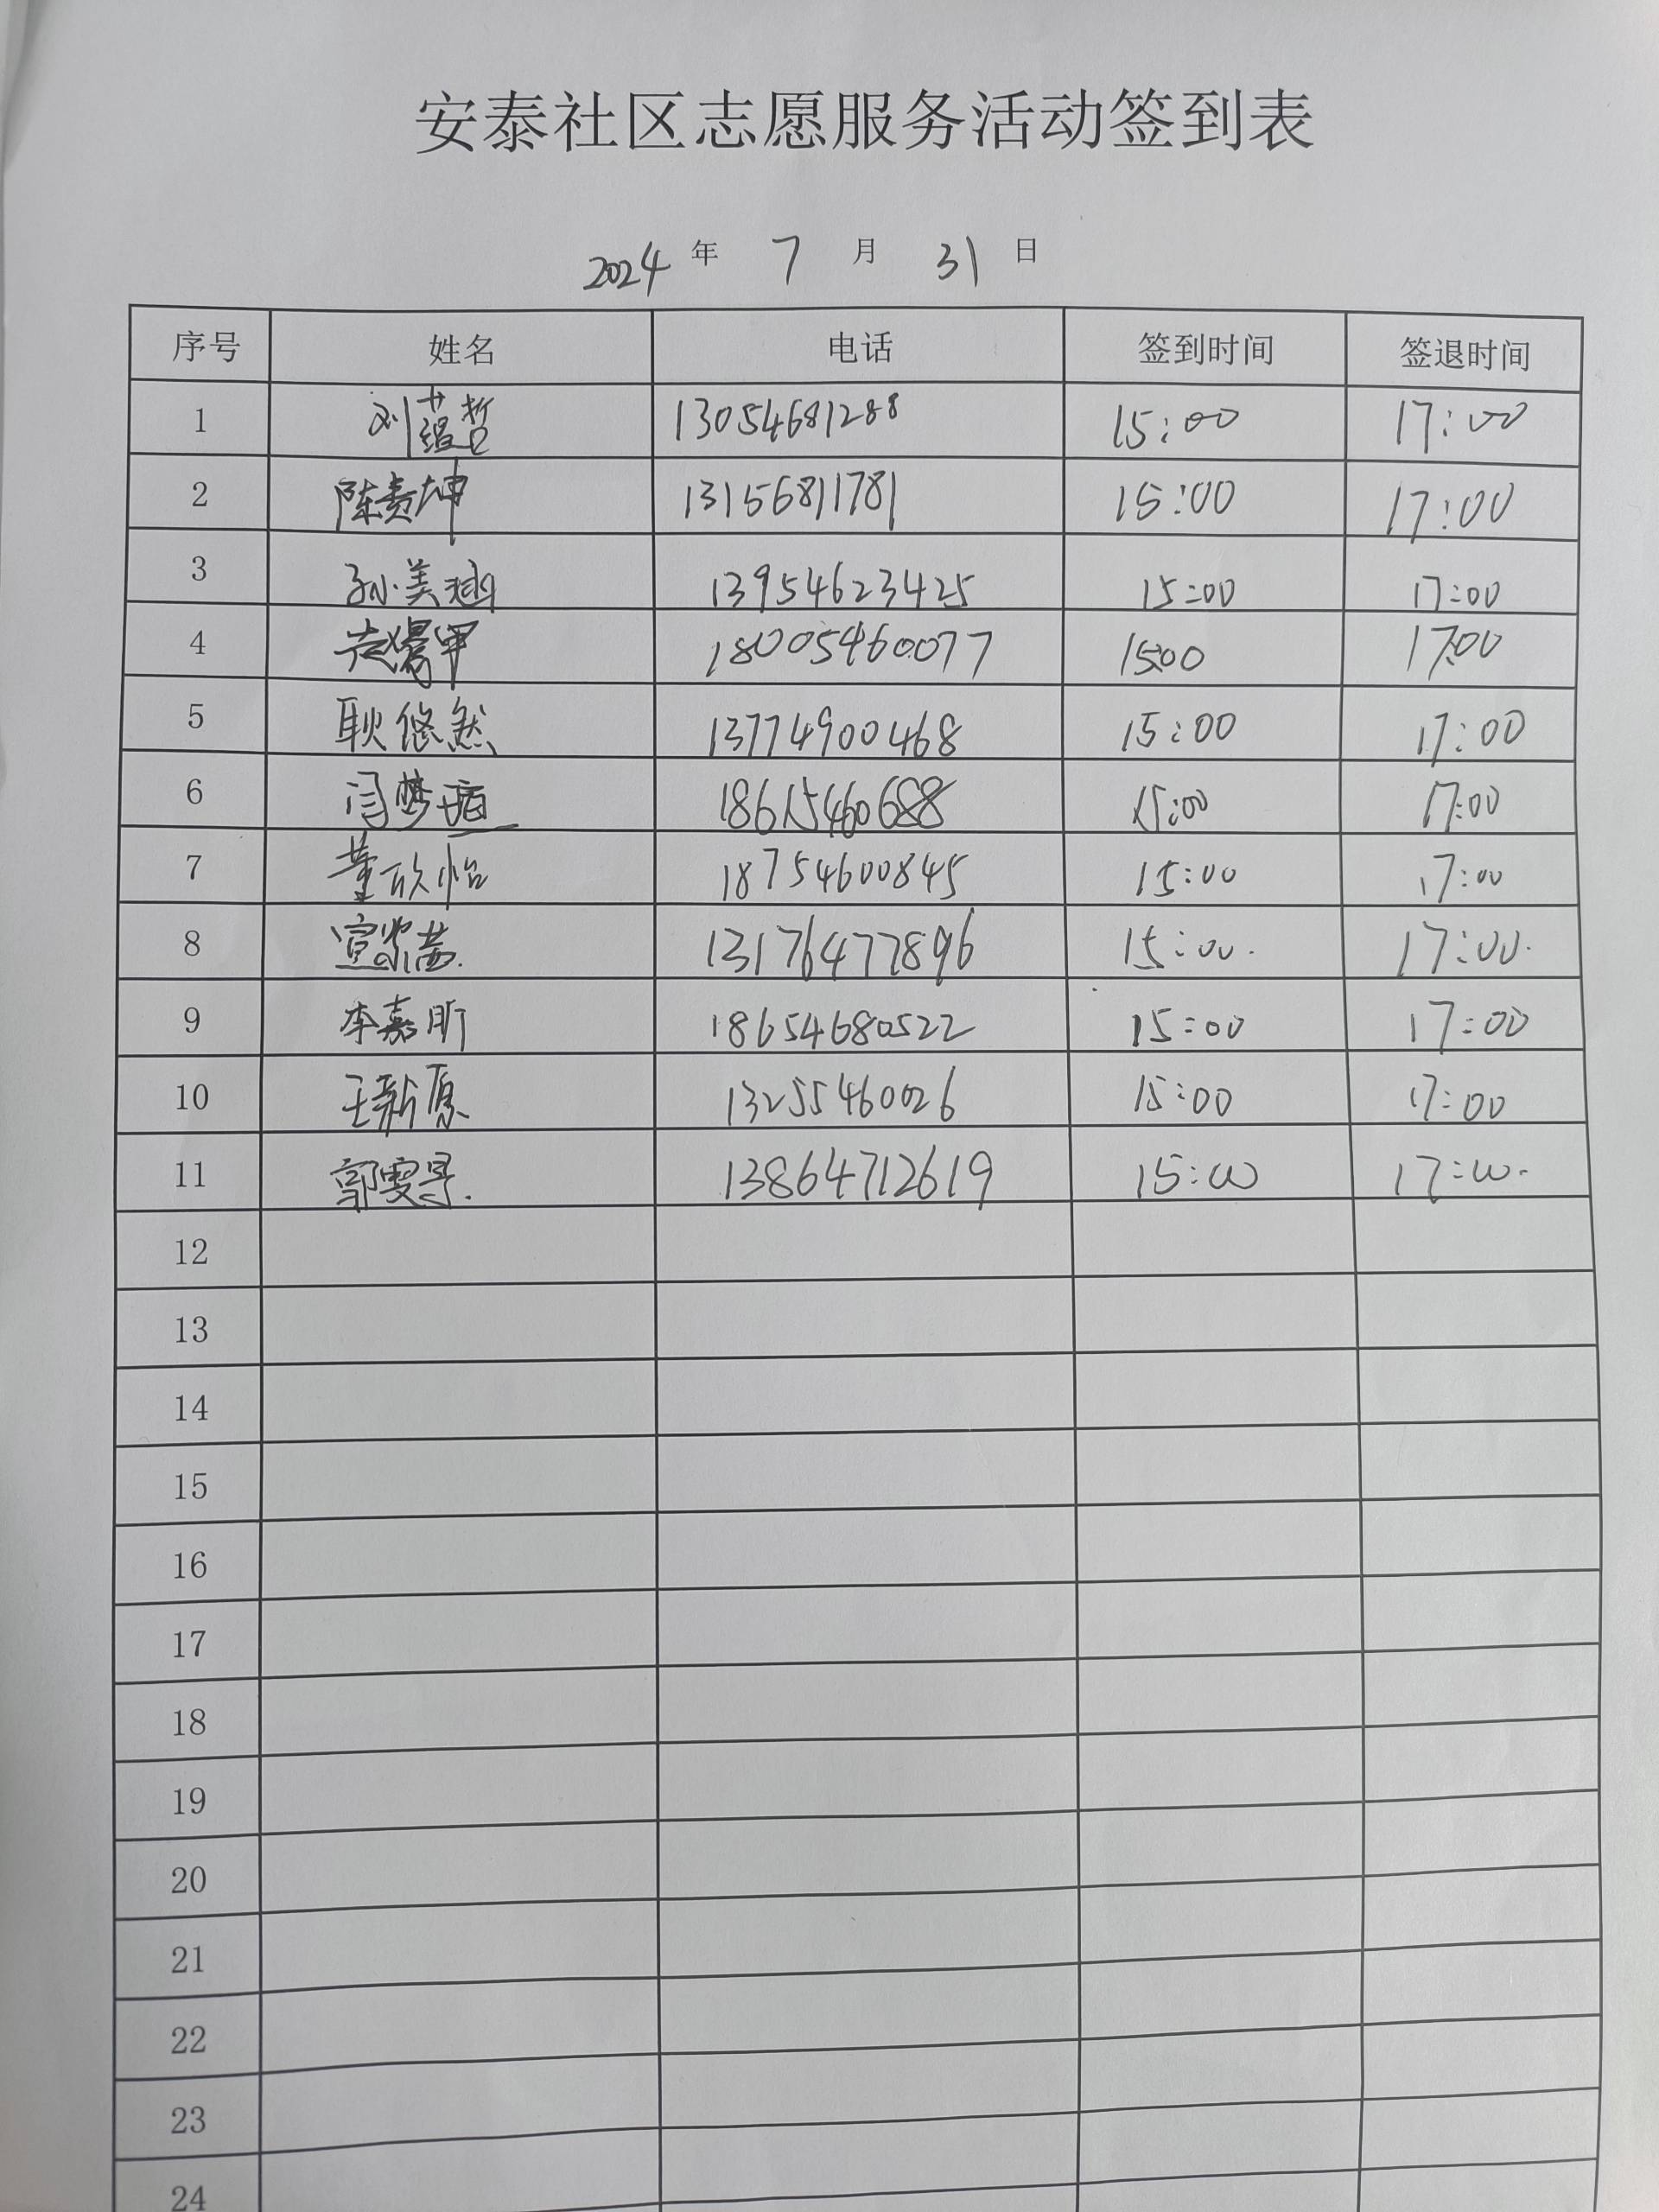 安泰社区志愿服务活动签到表
2024 年 7 月 31 日
序号 姓名 电话 签到时间 签退时间
1 刘蕴哲 13054681288 15:00 17:00
2 陈贵坤 13156811781 15:00 17:00
3 孙美涵 13954623425 15:00 17:00
4 18005460077 15:00 17:00
5 耿悠然 13774900468 15:00 17:00
6 闫梦瑶 18615460688 15:00 17:00
7 董欣怡 18754600845 15:00 17:00
8 13176477896 15:00. 17:00.
9 李嘉昕 18654680522 15:00 17:00
10 王新原 13255460026 15:00 17:00
11 郭雯寻. 13864712619 15:00 17:00.
12
13
14
15
16
17
18
19
20
21
22
23
24